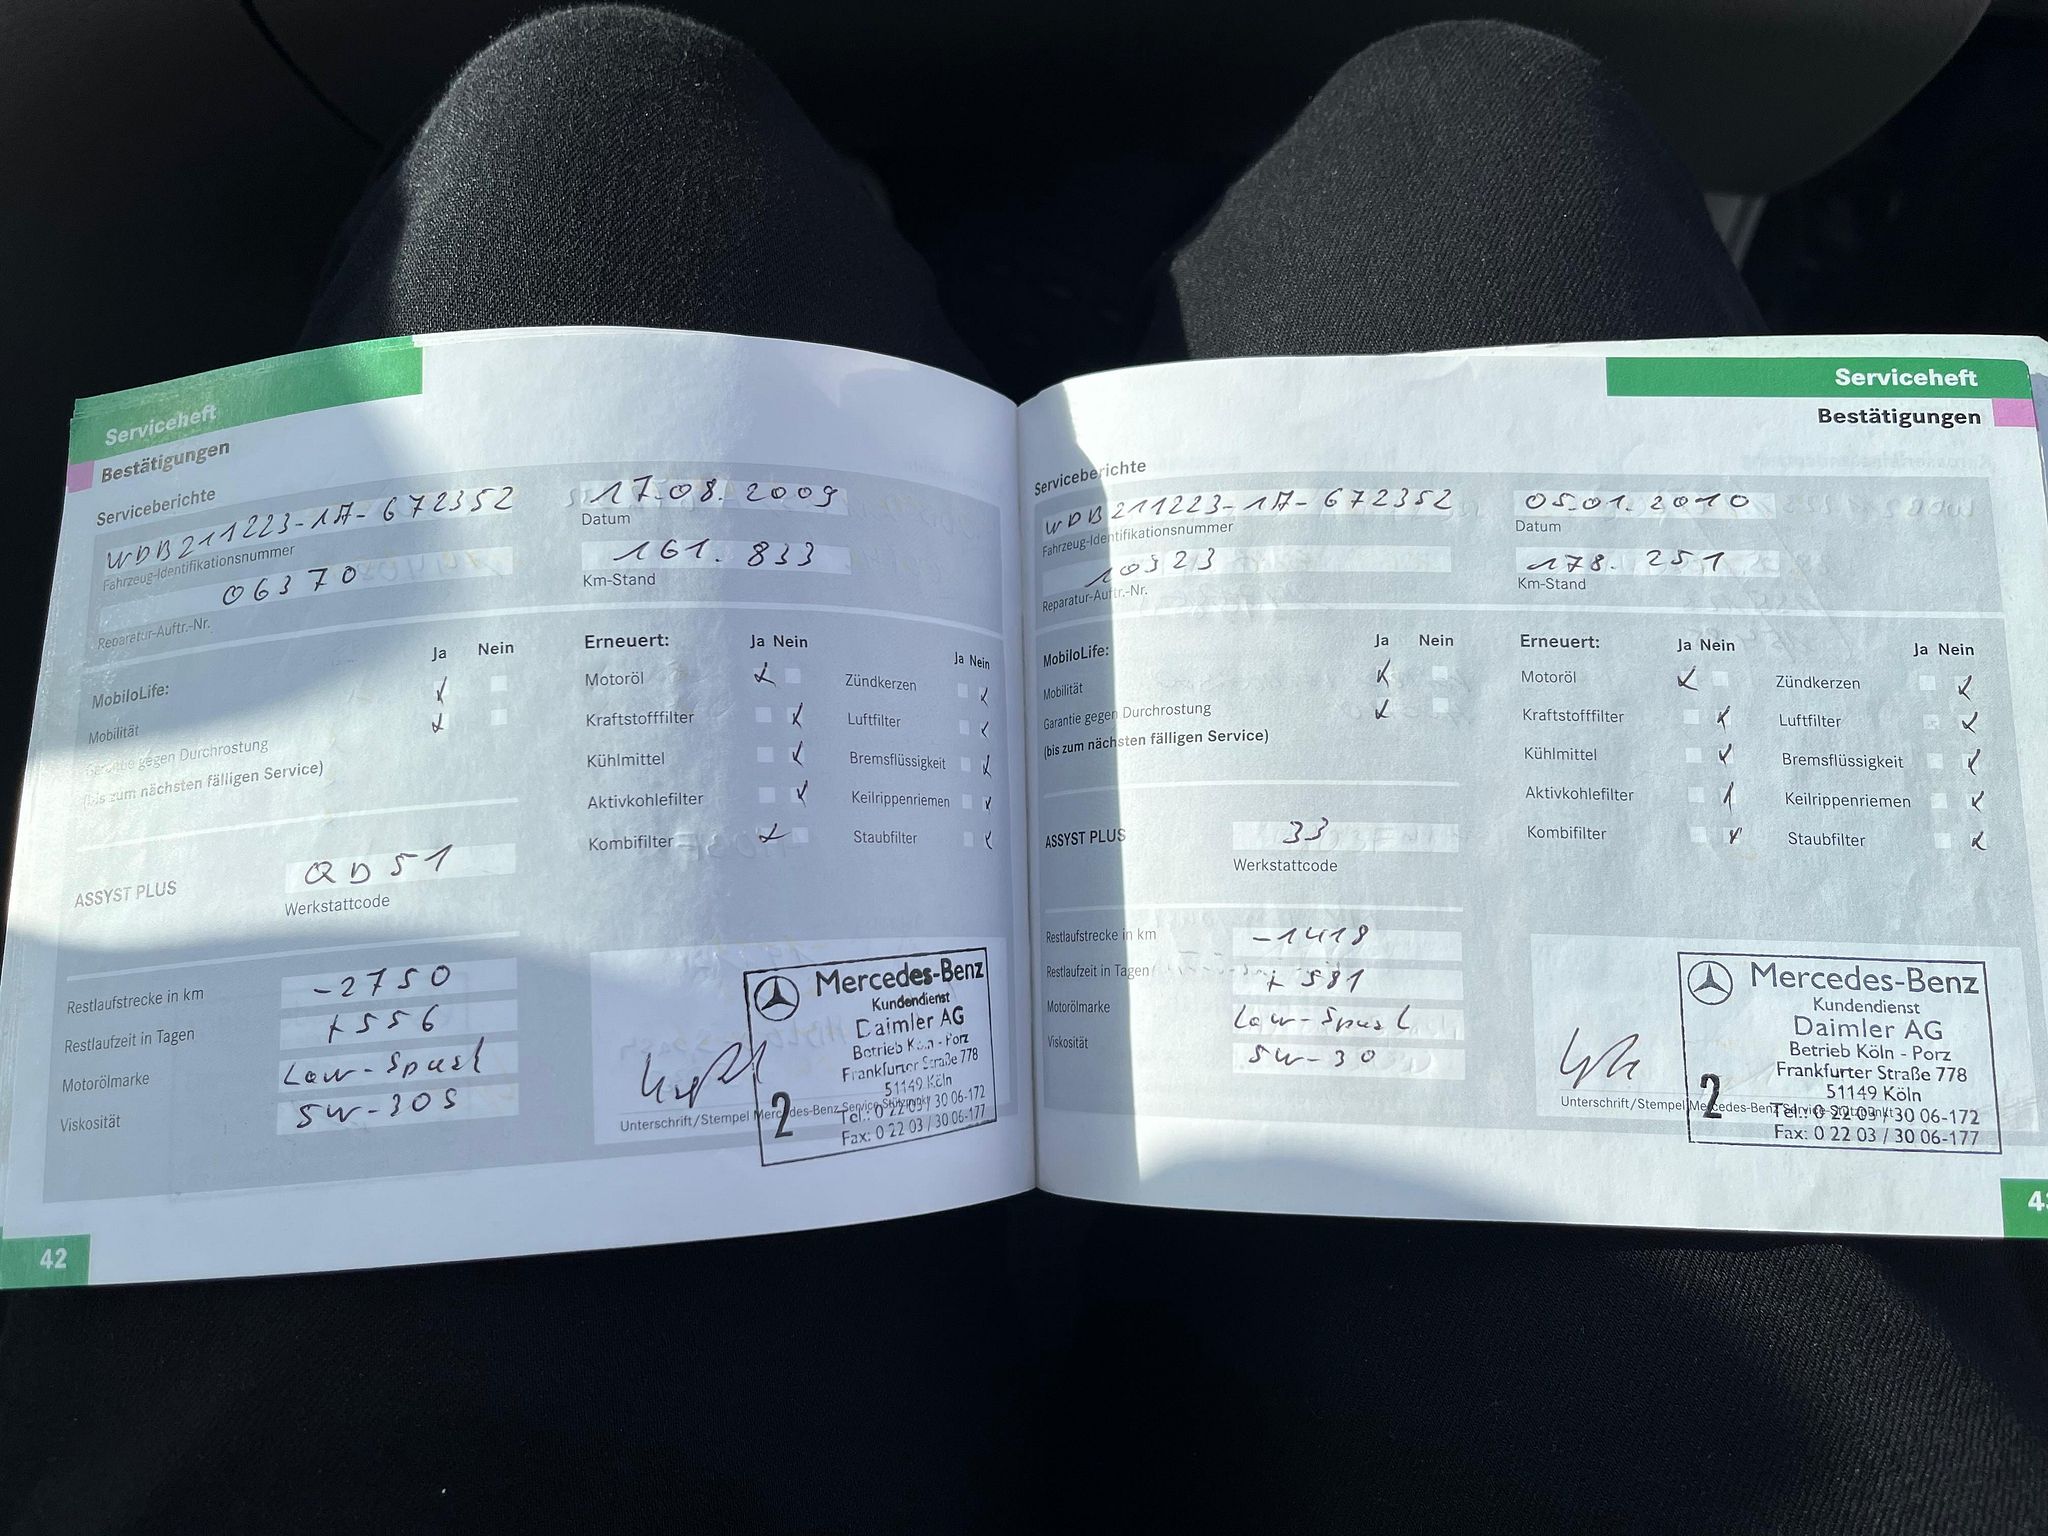 Serviceheft
Bestätigungen
Serviceberichte
WDB211223-1A-672352
Fahrzeug-Identifikationsnummer
06370
Reparatur-Auftr.-Nr.
17.08.2009
Datum
161.833
Km-Stand
Ja Nein
MobiloLife:
Mobilität
Garantie gegen Durchrostung
(bis zum nächsten fälligen Service)
ASSYST PLUS
QD51
Werkstattcode
Restlaufstrecke in km
-2750
Restlaufzeit in Tagen
+556
Motorölmarke
Low-Spash
Viskosität
5W-30S
Erneuert:
Ja Nein
Motoröl
Kraftstofffilter
Kühlmittel
Aktivkohlefilter
Kombifilter
Ja Nein
Zündkerzen
Luftfilter
Bremsflüssigkeit
Keilrippenriemen
Staubfilter
Mercedes-Benz
Kundendienst
Daimler AG
Betrieb Köln - Porz
Frankfurter Straße 778
51149 Köln
2
Tel.: 0 22 03 / 30 06-172
Fax: 0 22 03 / 30 06-177
Unterschrift/Stempel Mercedes-Benz Service-Stützpunkt
42
Serviceheft
Bestätigungen
Serviceberichte
WDB211223-1A-672352
Fahrzeug-Identifikationsnummer
10323
Reparatur-Auftr.-Nr.
05.01.2010
Datum
178.251
Km-Stand
Ja Nein
MobiloLife:
Mobilität
Garantie gegen Durchrostung
(bis zum nächsten fälligen Service)
ASSYST PLUS
33
Werkstattcode
Restlaufstrecke in km
-1418
Restlaufzeit in Tagen
+581
Motorölmarke
Viskosität
5W-30
Erneuert:
Ja Nein
Motoröl
Kraftstofffilter
Kühlmittel
Aktivkohlefilter
Kombifilter
Ja Nein
Zündkerzen
Luftfilter
Bremsflüssigkeit
Keilrippenriemen
Staubfilter
Mercedes-Benz
Kundendienst
Daimler AG
Betrieb Köln - Porz
Frankfurter Straße 778
51149 Köln
2
Tel.: 0 22 03 / 30 06-172
Fax: 0 22 03 / 30 06-177
Unterschrift/Stempel Mercedes-Benz Service-Stützpunkt